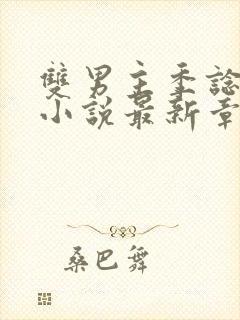 雙男主季諗
小說最新章
桑巴舞